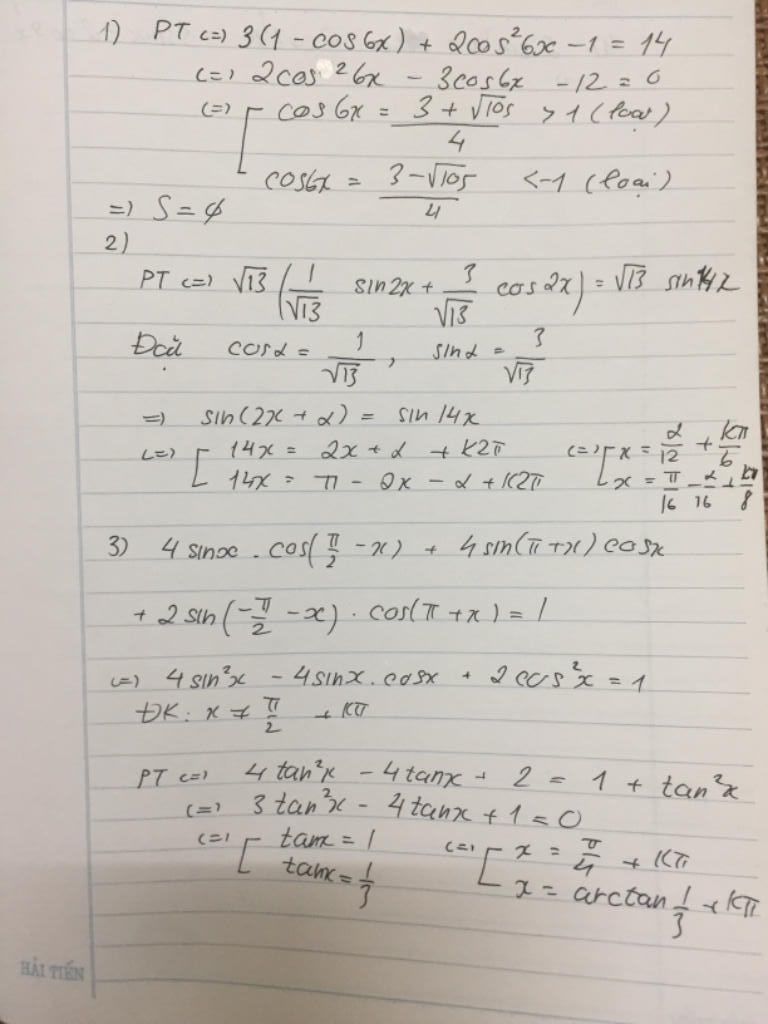 1) PT <=> 3(1 - cos6x) + 2cos²6x - 1 = 14
<=> 2cos²6x - 3cos6x - 12 = 0
<=> [ cos6x = (3 + √105)/4 > 1 (loại)
cos6x = (3 - √105)/4 < -1 (loại)
=> S = ∅
2)
PT <=> √13 (1/√13 sin2x + 3/√13 cos2x) = √13 sin14x
Đặt cosα = 1/√13 , sinα = 3/√13
=> sin(2x + α) = sin14x
<=> [ 14x = 2x + α + k2π <=> [ x = α/12 + kπ/6
14x = π - 2x - α + k2π x = π/16 - α/16 + kπ/8
3) 4sinx . cos(π/2 - x) + 4sin(π + x) cosx
+ 2sin(-π/2 - x) . cos(π + x) = 1
<=> 4sin²x - 4sinx.cosx + 2cos²x = 1
ĐK: x ≠ π/2 + kπ
PT <=> 4tan²x - 4tanx + 2 = 1 + tan²x
<=> 3tan²x - 4tanx + 1 = 0
<=> [ tanx = 1 <=> [ x = π/4 + kπ
tanx = 1/3 x = arctan 1/3 + kπ
HẢI TIẾN